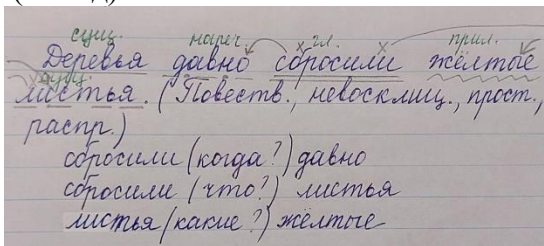 сущ. нареч. гл. прил.
Деревья давно сбросили жёлтые
сущ.
листья. (Повеств., невосклиц., прост.,
распр.)
сбросили (когда?) давно
сбросили (что?) листья
листья (какие?) жёлтые